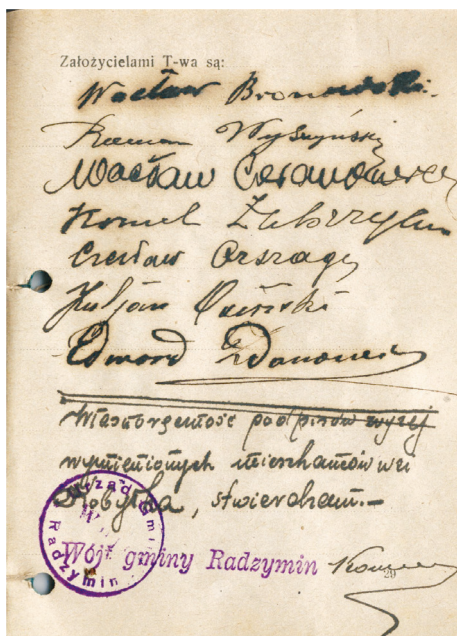 Założycielami T-wa są:
Wacław Bronowski
Roman Wyszyński
Wacław
Kornel
Czesław Orszagy
Juljan
Edward Zdanowicz
Własnoręczność podpisów wyżej
wymienionych mieszkańców wsi
Kobyłka, stwierdzam.-
Urząd Gminy
Radzymin
Wójt gminy Radzymin
29